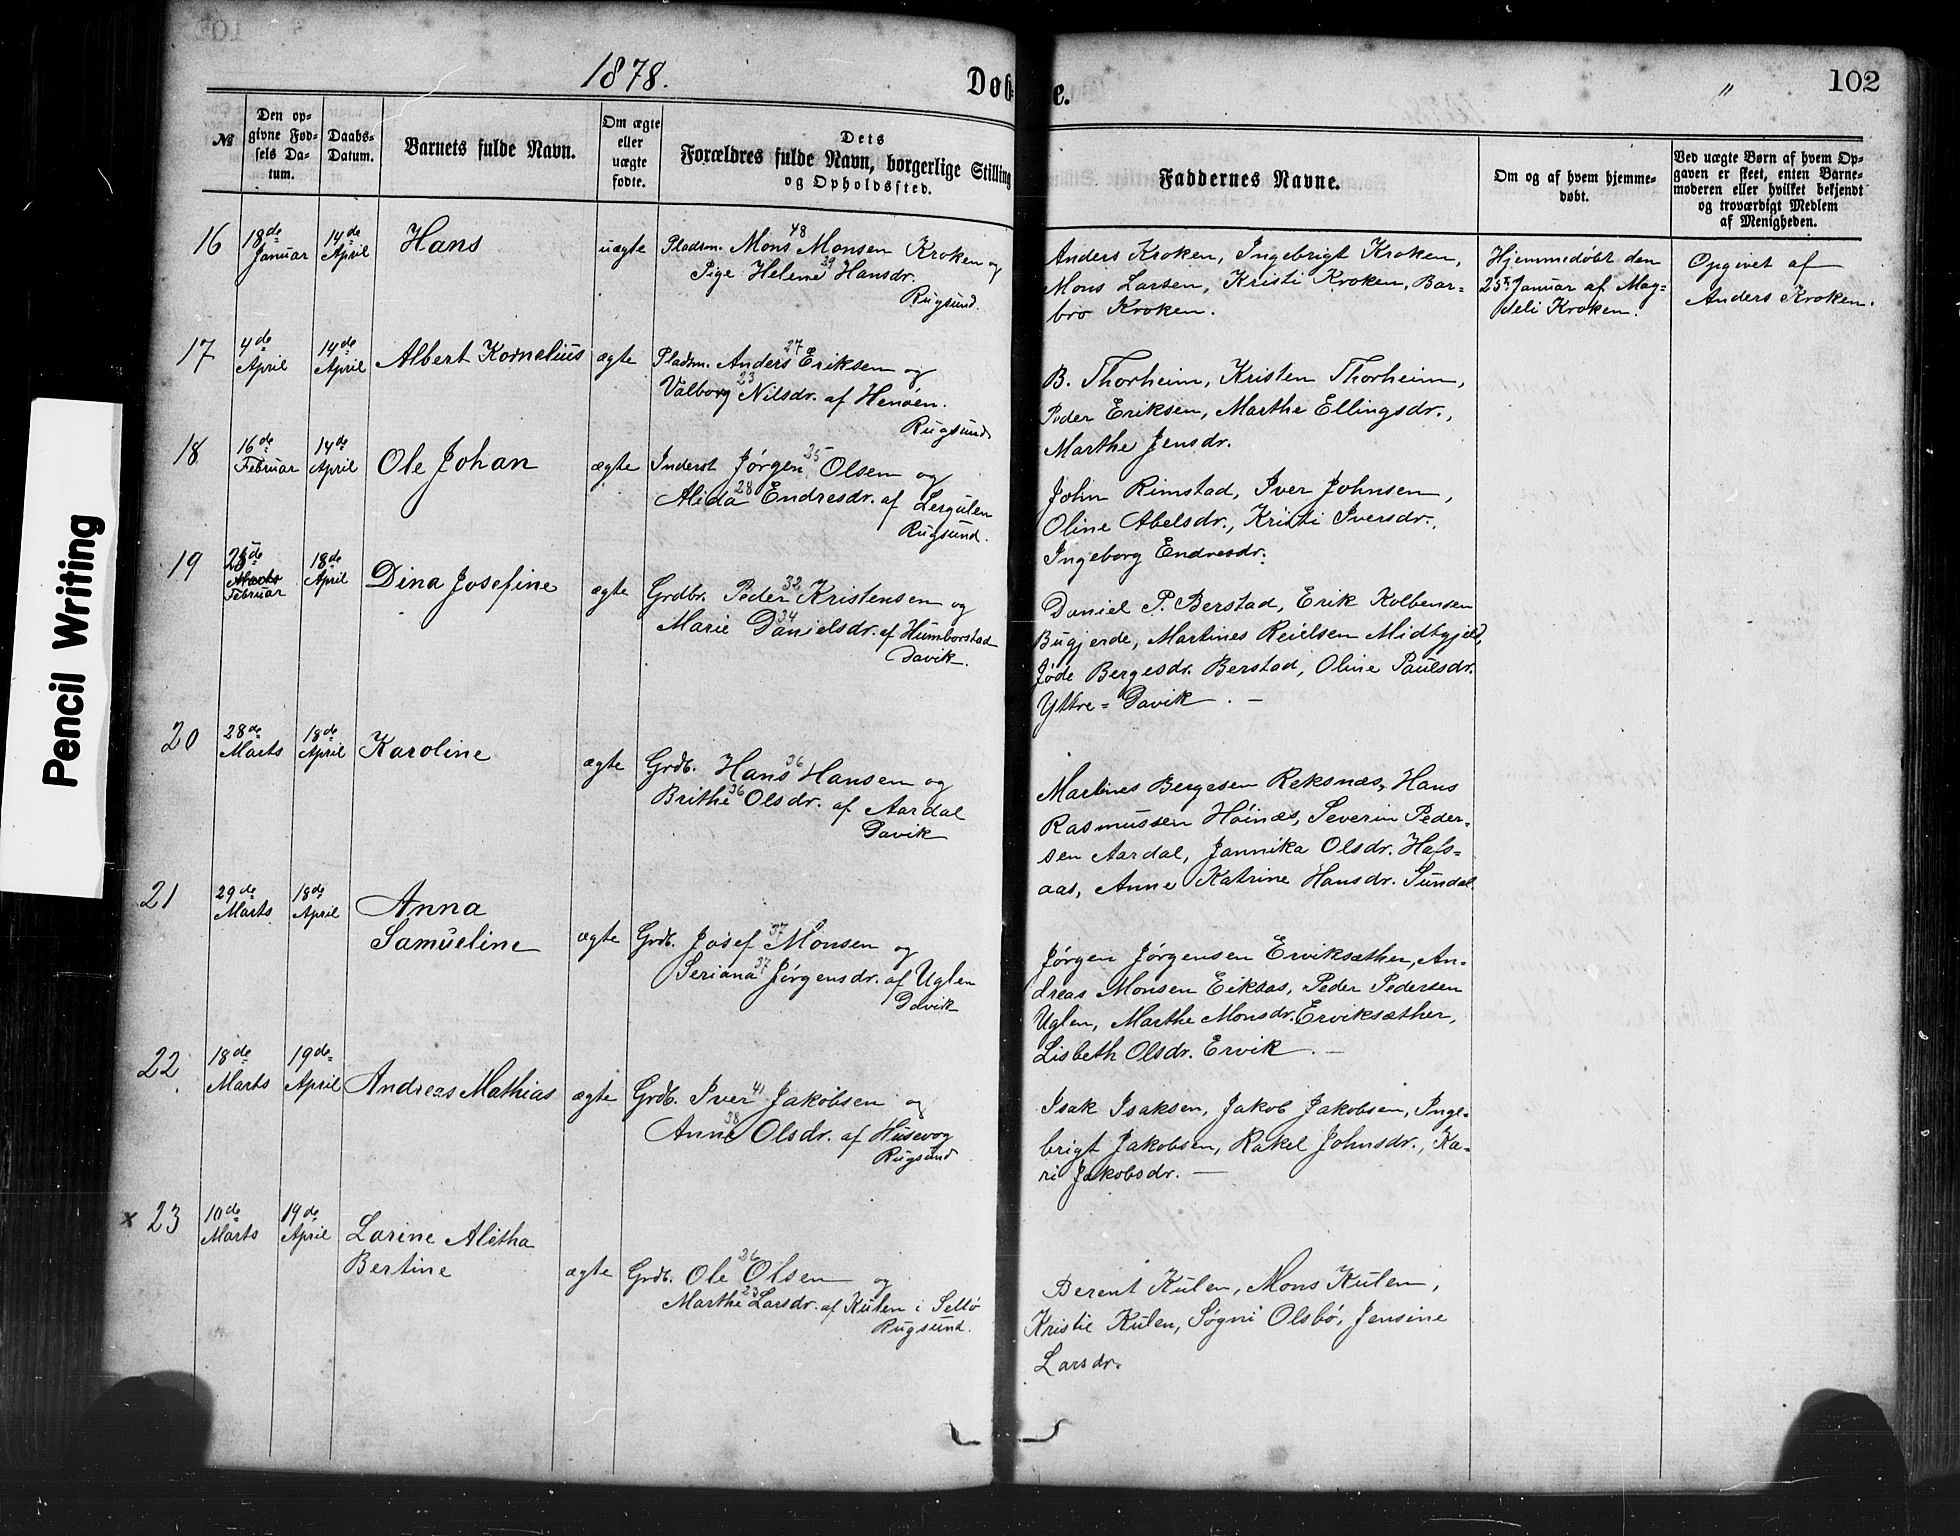 1878.
Døb-
e.
102
№
Den op-
givne Fød-
sels Da-
tum.
Daabs-
Datum.
Barnets fulde Navn.
Om ægte
eller
uægte
fødte.
Dets
Forældres fulde Navn, borgerlige Stilling
og Opholdssted.
Faddernes Navne.
Om og af hvem hjemme-
døbt.
Ved uægte Børn af hvem Op-
gaven er skeet, enten Barne-
moderen eller hvilket bekjendt
og troværdigt Medlem
af Menigheden.
16
18de
Januar
14de
April
Hans
uægte
Pladsm. Mons 48 Monsen Kroken og
Pige Helene 29 Hansdr.
Rugsund.
Anders Kroken, Ingebrigt Kroken,
Mons Larsen, Kristi Kroken, Bar-
bro Kroken.
Hjemmedøbt den
25 Januar af Mag-
deli Kroken.
Opgivet af
Anders Kroken.
17
4de
April
14de
April
Albert Kornelius
ægte
Pladsm. Anders 27 Eriksen og
Valborg 23 Nilsdr. af Henøen.
Rugsund
B. Thorheim, Kristen Thorheim,
Peder Eriksen, Marthe Ellingsdr.,
Marthe Jensdr.
18
16de
Februar
14de
April
Ole Johan
ægte
Inderst Jørgen 25 Olsen og
Alida 28 Endresdr. af Lergulen
Rugsund.
John Rimstad, Iver Johnsen,
Oline Abelsdr., Kristi Iversdr.,
Ingeborg Endresdr.
19
Marts
Februar
18de
April
Dina Josefine
ægte
Grdbr. Peder 32 Kristensen og
Marie 34 Danielsdr. af Humborstad
Davik.
Daniel P. Berstad, Erik Kolbensen
Bugjerde, Martines Reielsen Midtgjeld,
Jøde Bergesdr. Berstad, Oline Paulsdr.
Yttre-Davik. —
20
28de
Marts
18de
April
Karoline
ægte
Grdb. Hans 36 Hansen og
Brithe 36 Olsdr. af Aardal
Davik
Martines Bergesen Reksnæs, Hans
Rasmussen Høinæs, Severin Peder-
sen Aardal, Jannika Olsdr. Hafs-
aas, Anne Katrine Hansdr. Sundal.
21
29de
Marts
18de
April
Anna
Samueline
ægte
Grdb. Josef 37 Monsen og
Seriana 37 Jørgensdr. af Uglen
Davik
Jørgen Jørgensen Erviksæther, An-
dreas Monsen Eikaas, Peder Pedersen
Uglen, Marthe Monsdr. Erviksæther,
Lisbeth Olsdr. Ervik. —
22
18de
Marts
19de
April
Andreas Mathias
ægte
Grdb. Iver 41 Jakobsen og
Anne 38 Olsdr. af Husevog
Rugsund
Isak Isaksen, Jakob Jakobsen, Inge-
brigt Jakobsen, Rakel Johnsdr., Ka-
ri Jakobsdr. —
x 23
10de
Marts
19de
April
Larine Alétha
Bertine
ægte
Grdb. Ole 26 Olsen og
Marthe 23 Larsdr. af Kulen i Sellø
Rugsund.
Berent Kulen, Mons Kulen,
Kristie Kulen, Søgni Olsbø, Jensine
Larsdr.
Pencil Writing